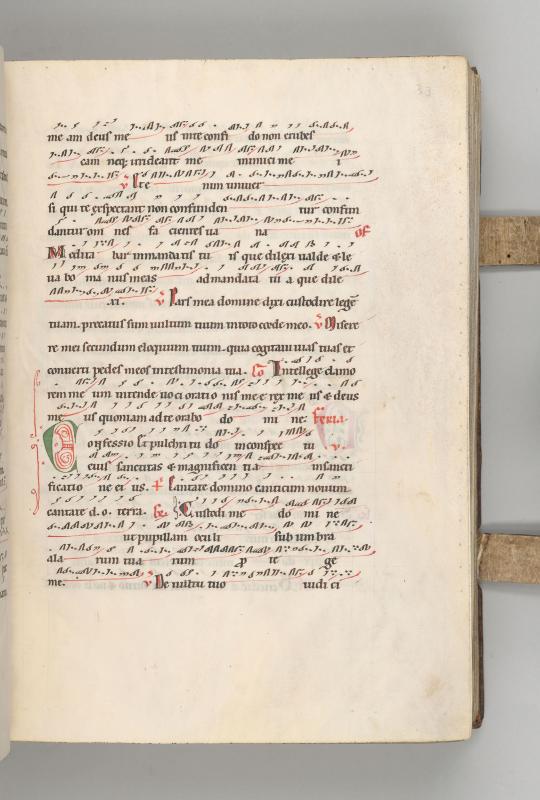 33
me am deus me us in te confi do non erubes
cam neq; irrideant me inimici me i
℣ Ete nim univer
si qui te exspectant non confunden tur confun
dantur om nes fa cientes ua na of
Medita bar in mandatis tu is que dilexi valde & le
ua bo ma nus meas ad mandata tu a que dile
xi. ℣ Pars mea domine dixi custodire legē
tuam. precatus sum uultum tuum in toto corde meo. ℣ Misere
re mei secundum eloquium tuum. quia cogitaui uias tuas et
conuerti pedes meos in testimonia tua. Co Intellege clamo
rem me um intende uoci oratio nis me e rex me us & deus
me us quoniam ad te orabo do mi ne. feria
Confessio & pulchritu do in conspec tu
eius sanctitas & magnificen tia in sancti
ficatio ne ei us. Cantate domino canticum nouum
cantate d. o. terra. Custodi me do mi ne
ut pupillam oculi sub umbra
ala rum tua rum p te ge
me. ℣ De uultu tuo iudi ci